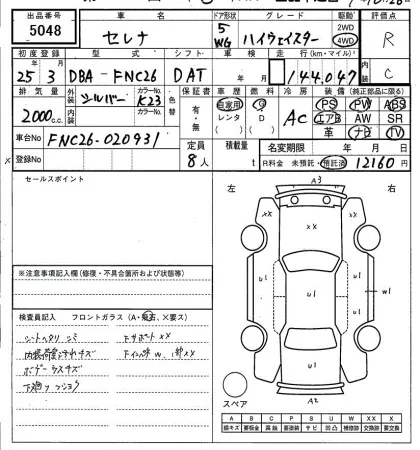 出品番号 車名 ドア形状 グレード 駆動 評価点
5048 セレナ 5 WG ハイウェイスター 2WD 4WD R
初度登録 型式 シフト 車検 走行(km・マイル) 内装
25年3月 DBA-FNC26 DAT 年 月 144,047 C
排気量 外装 シルバー カラーNo. K23 色替 保証書 車歴 燃料 冷房 装備(純正部品に限る)
2000 c.c. 内装 カラーNo. 有・無 自家用 レンタ ( ) G D ( ) AC PS PW ABS
エアB AW SR
革 ナビ TV
車台No FNC26-020931 定員 8人 積載量 t 名変期限 年 月 日
登録No R料金 未預託・預託済 12160円
セールスポイント
左 A3 右
xx xx
u1 u1 u1 w1
u1
A2
スペア
※注意事項記入欄(修復・不具合箇所および状態等)
検査員記入 フロントガラス(A・飛石、X要ス)
シートヘタリ シミ
内装
ボデー ウスキズ
下廻り
A B C P S U W X XX X
線キズ 要板金 腐食 要塗装 サビ 凹凸 補修跡 交換跡 要交換